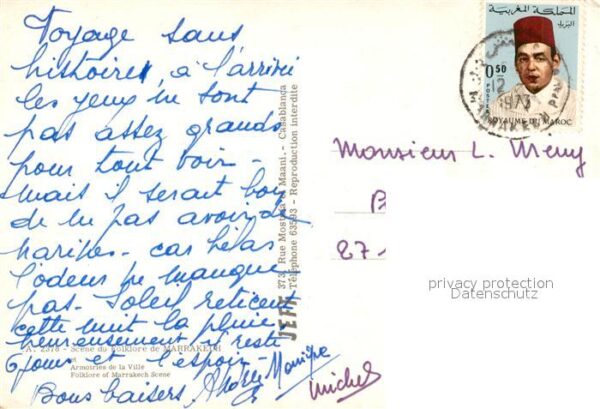 Voyage sans
histoires, à l'arrivée
les yeux ne sont
pas assez grands
pour tout voir -
mais il serait bon
de ne pas avoir de
narines - car hélas
l'odeur ne manque
pas - Soleil réticent
cette nuit la pluie
heureusement il reste
6 jours et l'espoir -
Bons baisers
Monique
Michel
A. 2378 - Scène du Folklore de MARRAKECH
et
Armoiries de la Ville
Folklore of Marrakech Scene
JEFF 373, Rue Mostafa Maani. - Casablanca
Téléphone 635-83 - Reproduction interdite
المملكة المغربية
البريد
0.50
POSTES
ROYAUME DU MAROC
12
1973
Monsieur L.
B
87-
privacy protection
Datenschutz